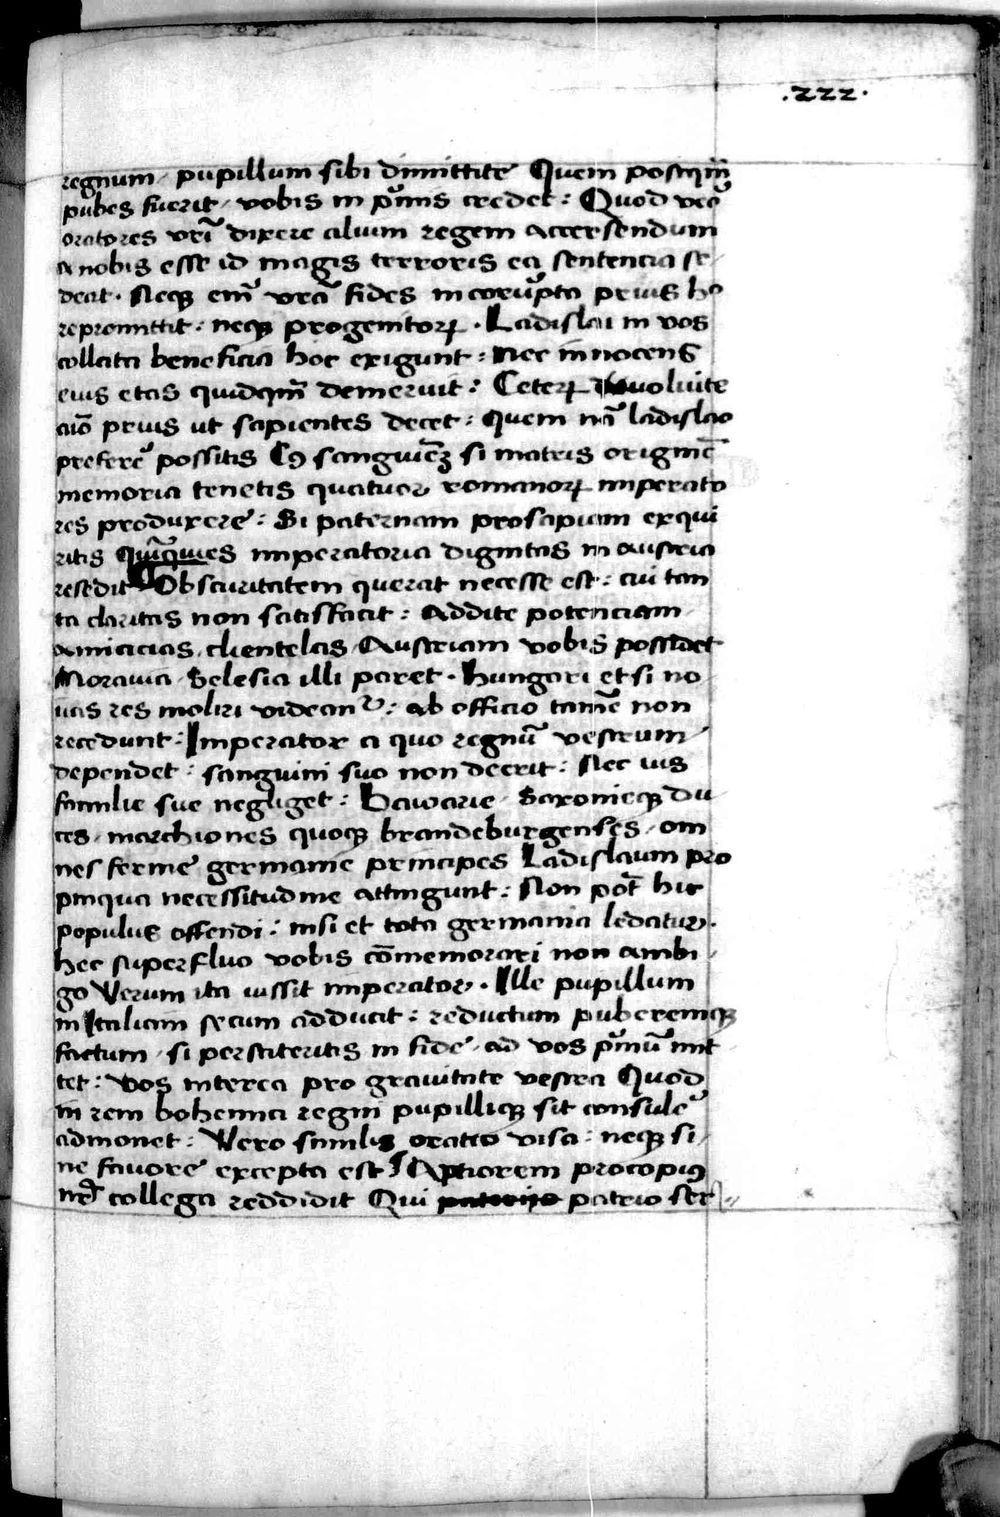 .222.
regnum / pupillum sibi dimittite Quem postqm̄
pubes fuerit / vobis in pͥmis credet : Quod vero
oratores vrī dixere alium regem accersendum
a nobis esse id magis terroris ea sentencia se
deat . Neqȝ em̄ vrā fides incorrupta prius ho
repromittit : neqȝ progenitoꝝ . Ladislai in vos
collata beneficia hoc exigunt : nec innocens
eius etas quidqm̄ demeruit : Ceteꝝ uoluite
aīo prius ut sapientes decet : Quem nā ladislao
preferre possitis Cꝯ sanguiēȝ si matris originē
memoria tenetis quatuor romanoꝝ imperato
res produxere : Si paternam prosapiam exqui
ritis Quīquies imperatoria dignitas in austria
resedit Obscuritatem querat necesse est : cui tan
ta claritas non satisfacit : Addite potenciam
amicicias clientelas Austriam vobis possidet
Moravia Selesia illi paret . hungari et si no
uas res moliri videant᷑ : ab officio tamē non
recedunt : Imperator a quo regnū vestrum
dependet : sanguini suo non deerit : Nec ius
familie sue negliget : Bawarie Saxonieqȝ du
ces / marchiones quoqȝ brandeburgenses / om
nes ferme germanie principes Ladislaum pro
pinqua necessitudine attingunt : Non pōt hic
populus offendi : nisi et tota germania ledatur .
hec superfluo vobis cōmemorari non ambi
go Verum ita iussit imperator . Ille pupillum
in Italiam secum adducit : reductum puberemqȝ
factum / si perstiteritis in fide / ad vos pͥmū mit
tet : Vos interea pro grauitate vestra Quod
in rem bohemia regni pupilliqȝ sit consulere
admonet : Vero similis oratio visa : neqȝ si
ne fauore excepta est Aptiorem procopius
nr̄ collega reddidit Qui patrio ser